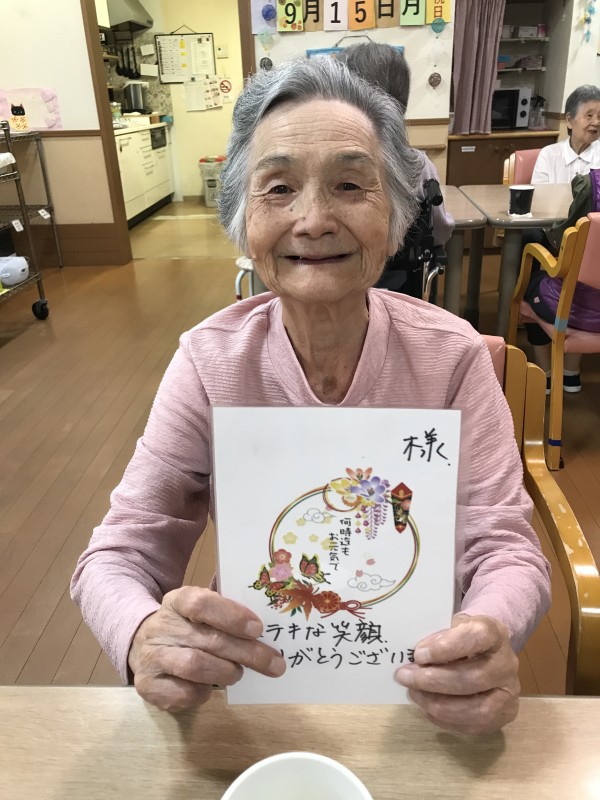 9月15日
祝日
様
何時迄も
お元気で
ステキな笑顔
りがとうございま